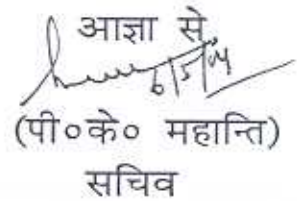 आज्ञा से
6/5/04
(पी०के० महान्ति)
सचिव